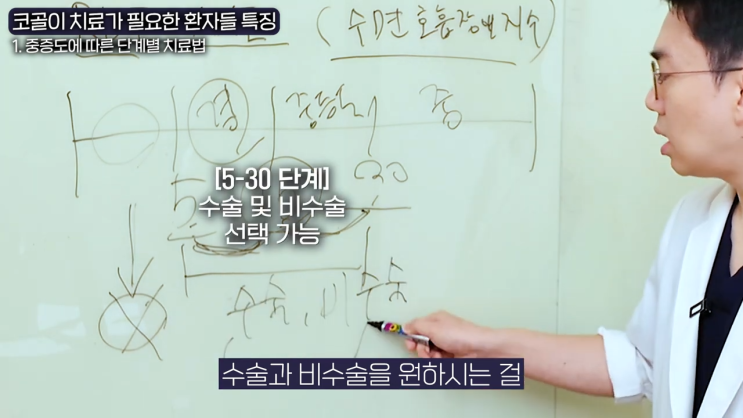 코골이 치료가 필요한 환자들 특징
1. 중증도에 따른 단계별 치료법
(수면 호흡장애 지수)
경 중등도 중
5 30
[5-30 단계]
수술 및 비수술
선택 가능
수술, 비수술
수술과 비수술을 원하시는 걸